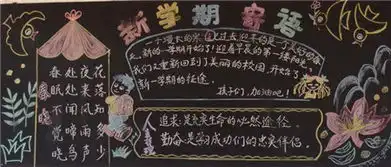 新学期寄语
春眠不觉晓
处处闻啼鸟
夜来风雨声
花落知多少
漫长的 过去迎来的是又 美好的春
天,新的一学期开始了!迎着早晨的第一缕阳光,
我们又重新回到了美丽的校园,开始了
新一学期的征途。
孩子们,加油吧!
人生
追求是 生命的必然途径。
勤奋是 成功们的忠实伴侣。